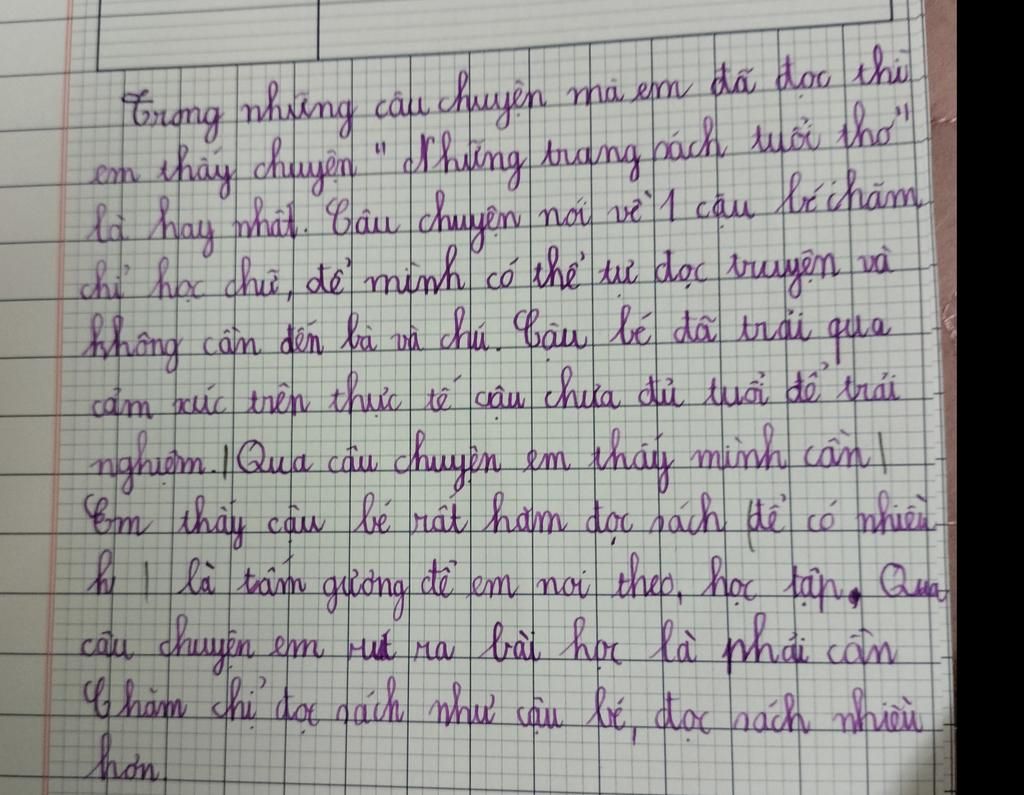 Trong những câu chuyện mà em đã đọc thì
em thấy chuyện " Những trang sách tuổi thơ"
là hay nhất. Câu chuyện nói về 1 cậu bé chăm
chỉ học chữ, để mình có thể tự đọc truyện và
không cần đến bà và chú. Cậu bé đã trải qua
cảm xúc trên thực tế cậu chưa đủ tuổi để trải
nghiệm. | Qua câu chuyện em thấy mình cần |
Em thấy cậu bé rất ham đọc sách (để có nhiều
h | là tấm gương để em noi theo, học tập. Qua
câu chuyện em rút ra bài học là phải cần
Chăm chỉ đọc sách như cậu bé, đọc sách nhiều
hơn.